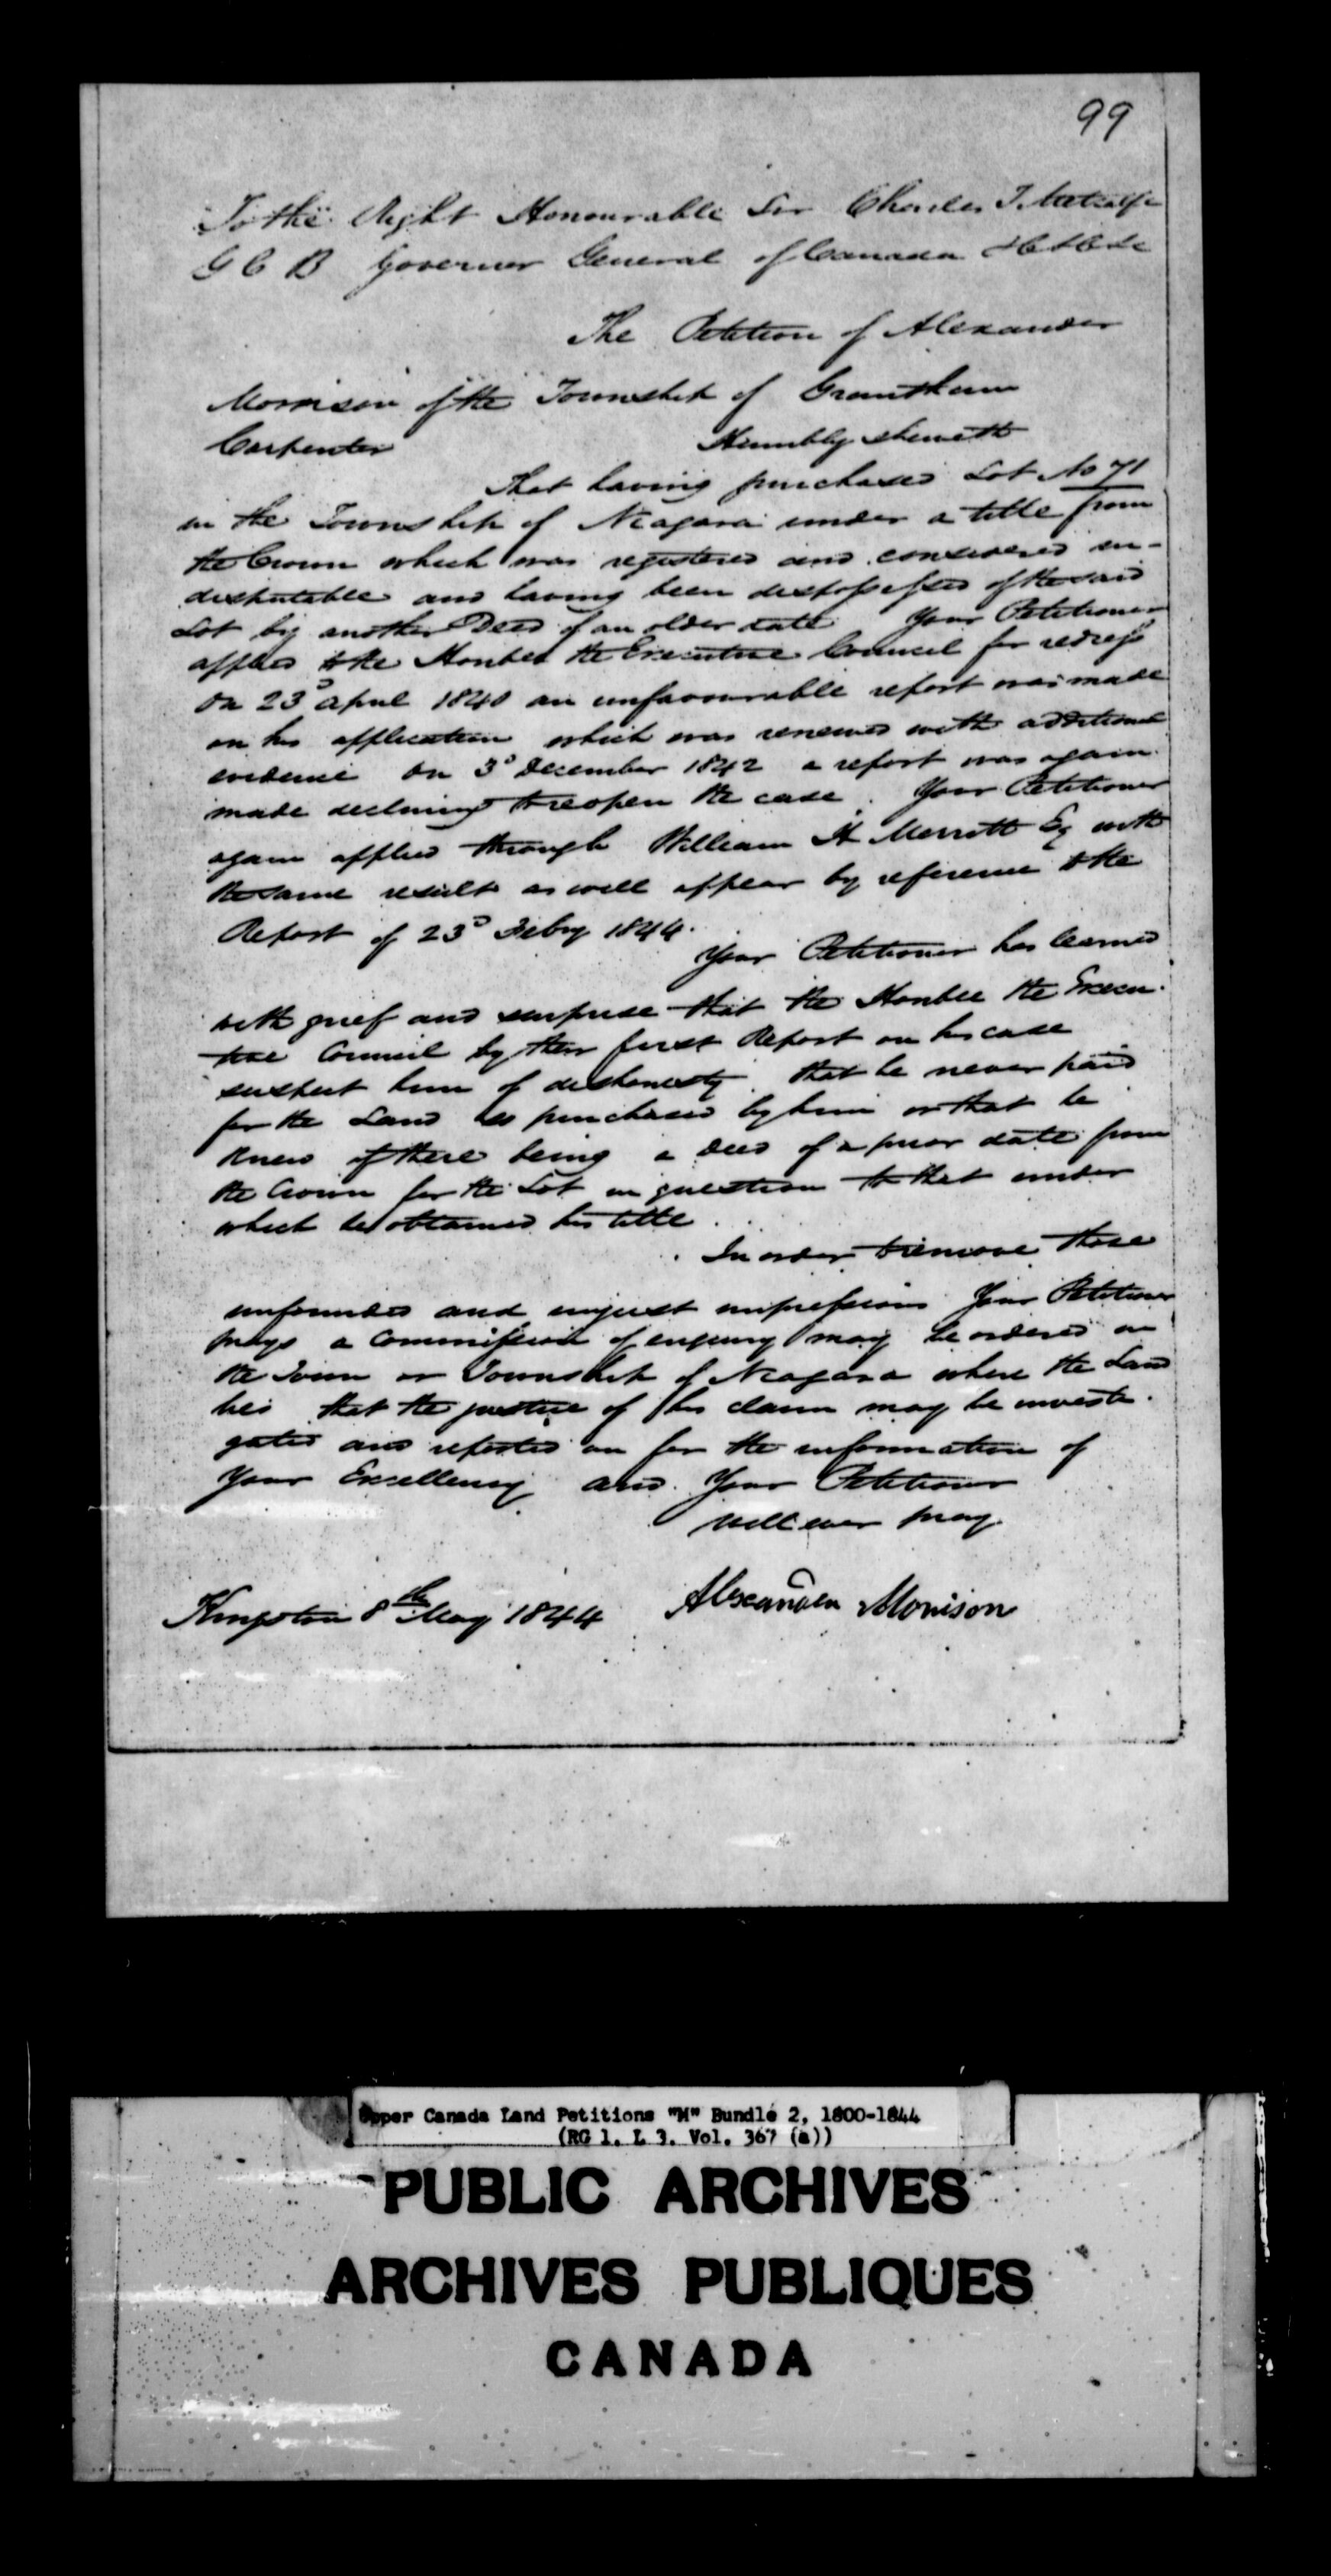 99
To the Right Honourable Sir Charles T. Metcalfe
G C B Governor General of Canada &c &c &c
The Petition of Alexander
Morrison of the Township of Grantham
Carpenter Humbly sheweth
That having purchased Lot No 71
in the Township of Niagara under a title from
the Crown which was registered and considered in-
disputable and having been dispossessed of the said
Lot by another Deed of an older date Your Petitioner
applied to the Honble the Executive Council for redress
On 23d April 1840 an unfavourable report was made
on his application which was renewed with additional
evidence On 3d December 1842 a report was again
made declining to reopen the case. Your Petitioner
again applied through William H Merritt Eq with
the same result as will appear by reference to the
Report of 23d Feby 1844.
Your Petitioner has learned
with grief and surprise that the Honble the Execu-
tive Council by their first Report on his case
suspect him of dishonesty that he never paid
for the Land as purchased by him or that he
knew of there being a Deed of a prior date from
the Crown for the Lot in question to that under
which he obtained his title.
In order to remove these
unfounded and unjust impressions Your Petitioner
prays a Commission of enquiry may be ordered in
the Town or Township of Niagara where the Land
lies that the justice of his claim may be investi-
gated and reported on for the information of
Your Excellency and Your Petitioner
will ever pray.
Kingston 8th May 1844 Alexander Morrison
Upper Canada Land Petitions "M" Bundle 2, 1800-1844
(RG 1, L 3, Vol. 367 (a))
PUBLIC ARCHIVES
ARCHIVES PUBLIQUES
CANADA